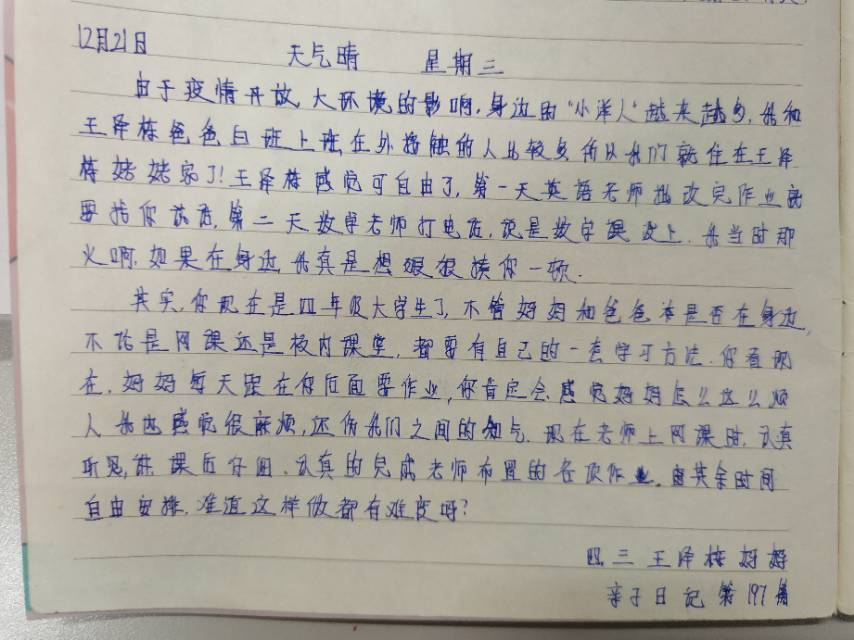 12月21日 天气晴 星期三
由于疫情开放,大环境的影响,身边的“小洋人”越来越多,我和
王泽栋爸爸白班上班,在外接触的人比较多所以我们就住在王泽
栋姥姥家了!王泽栋感觉可自由了,第一天英语老师批改完作业就
要找你谈话,第二天数学老师打电话,说是数学课没上.我当时那
火啊.如果在身边我真是想狠狠揍你一顿.
其实,你现在是四年级大学生了,不管妈妈和爸爸是否在身边,
不论是网课还是校内课堂,都要有自己的一套学习方法.你看现
在,妈妈每天跟在你后面要作业,你肯定会感觉妈妈怎么这么烦
人我也感觉很麻烦,还伤我们之间的和气.现在老师上网课时,认真
听见,课后仔细、认真的完成老师布置的各项作业。由其余时间
自由安排,难道这样做都有难度吗?
四三王泽栋妈妈
亲子日记第197篇